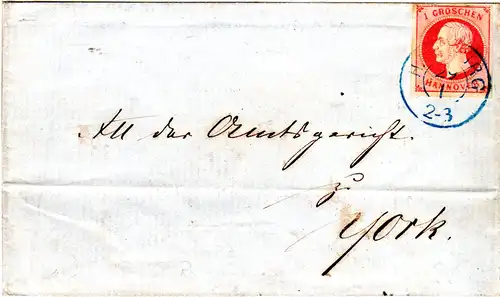 1 GROSCHEN
HANNOVER
29
1
2-3
An das Amtsgericht.
zu
York.